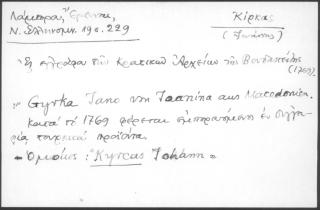 Λάμπρου, Ἔρευναι,
Ν. Ἑλληνομν. 19ος. 229
Κίρκας
(Ἰωάννης)
Ἐξ ἐγγράφου τῶν Κρατικῶν Ἀρχείων τῆς Βουδαπέστης
(1769).
"Gyrka Jano von Joanina aus Macedonien.
κατὰ τὸ 1769 φέρεται ἐμπορευόμενος ἐν
τουρκικὰ προϊόντα.
– Ὁμοίως: "Kyrcas Johann" –